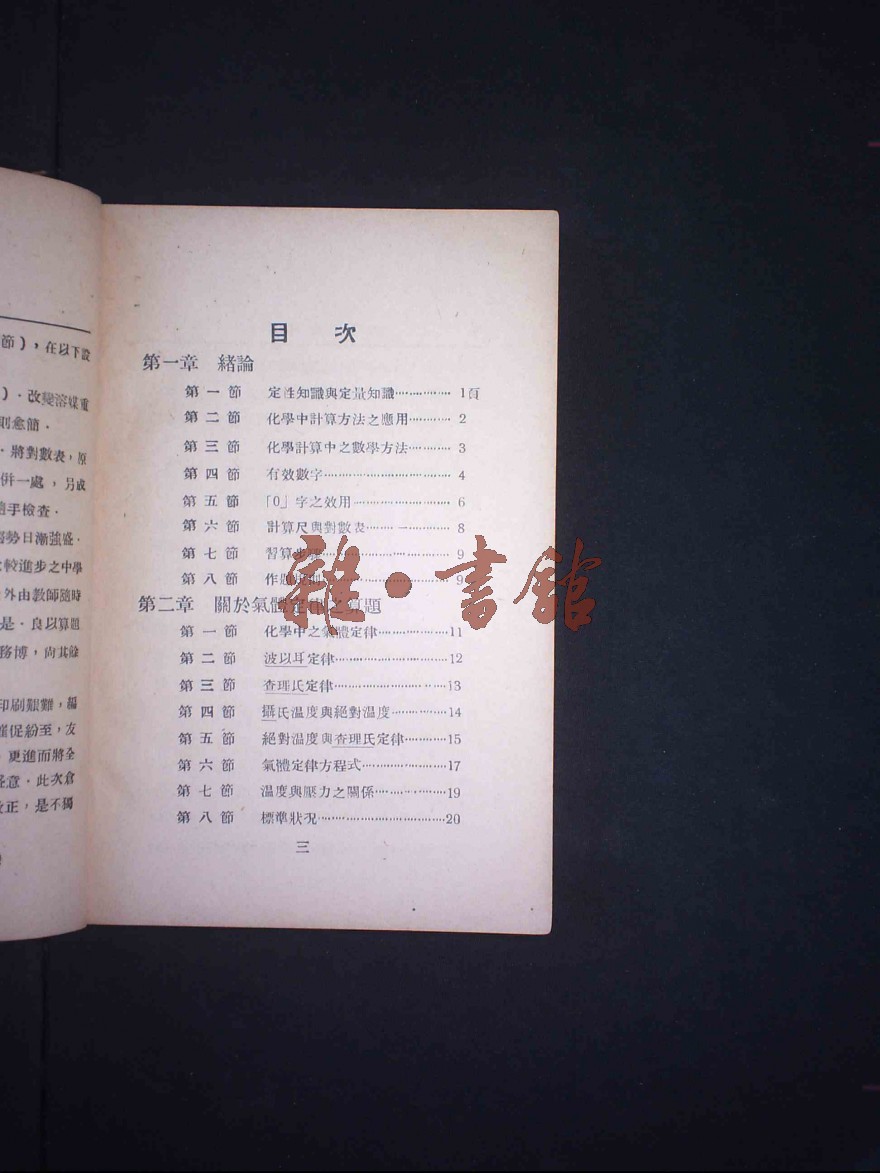 節)，在以下設
)．改變溶媒重
則愈簡．
．將對數表，原
併一處，另成
隨手檢查．
趨勢日漸強盛．
較進步之中學
外由教師隨時
是．良以算題
務博，尚其餘
印刷艱難，編
催促紛至，友
．更進而將全
意．此次倉
改正，是不獨
目 次
第一章 緒論
第一節 定性知識與定量知識……………1頁
第二節 化學中計算方法之應用…………2
第三節 化學計算中之數學方法…………3
第四節 有效數字…………………………4
第五節 「0」字之效用……………………6
第六節 計算尺與對數表…………………8
第七節 習算步驟…………………………9
第八節 作題規則…………………………9
第二章 關於氣體定律之算題
第一節 化學中之氣體定律………………11
第二節 波以耳定律………………………12
第三節 查理氏定律………………………13
第四節 攝氏溫度與絕對溫度……………14
第五節 絕對溫度與查理氏定律…………15
第六節 氣體定律方程式…………………17
第七節 溫度與壓力之關係………………19
第八節 標準狀況…………………………20
三
雜·書館